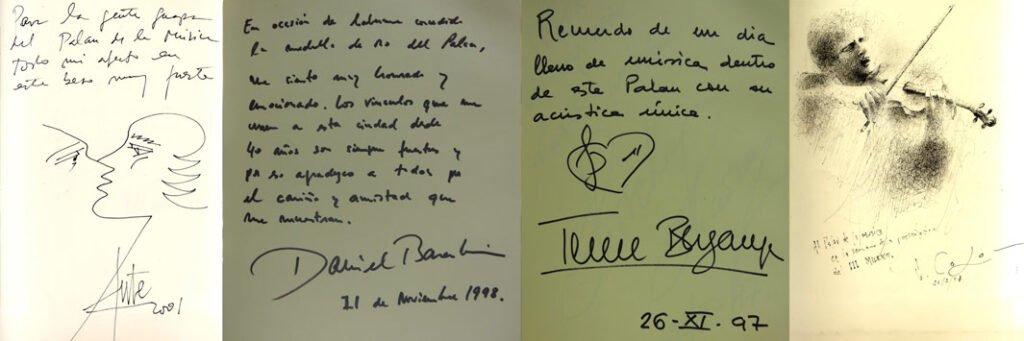 Para la gente guapa
del Palau de la Música
todo mi afecto en
este beso muy fuerte
Aute
2001
En occasión de haberme concedido
la medalla de oro del Palau,
me siento muy honrado y
emocionado. Los vinculos que me
unen a esta ciudad desde
40 años son siempre fuertes y
por eso agradezco a todos por
el cariño y amistad que
me muestran.
Daniel Barenboim
21 de Noviembre 1998.
Recuerdo de un dia
lleno de música dentro
de este Palau con su
acústica única.
Teresa Berganza
26-XI-97
Al Palau de la Música
en la
de III Milenio.